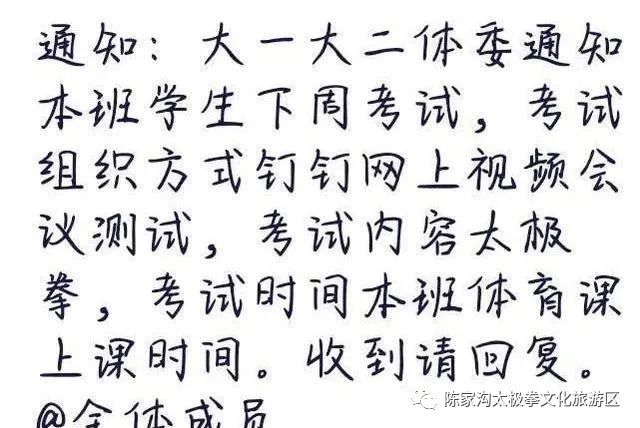 通知：大一大二体委通知
本班学生下周考试，考试
组织方式钉钉网上视频会
议测试，考试内容太极
拳，考试时间本班体育课
上课时间。收到请回复。
@全体成员
陈家沟太极拳文化旅游区